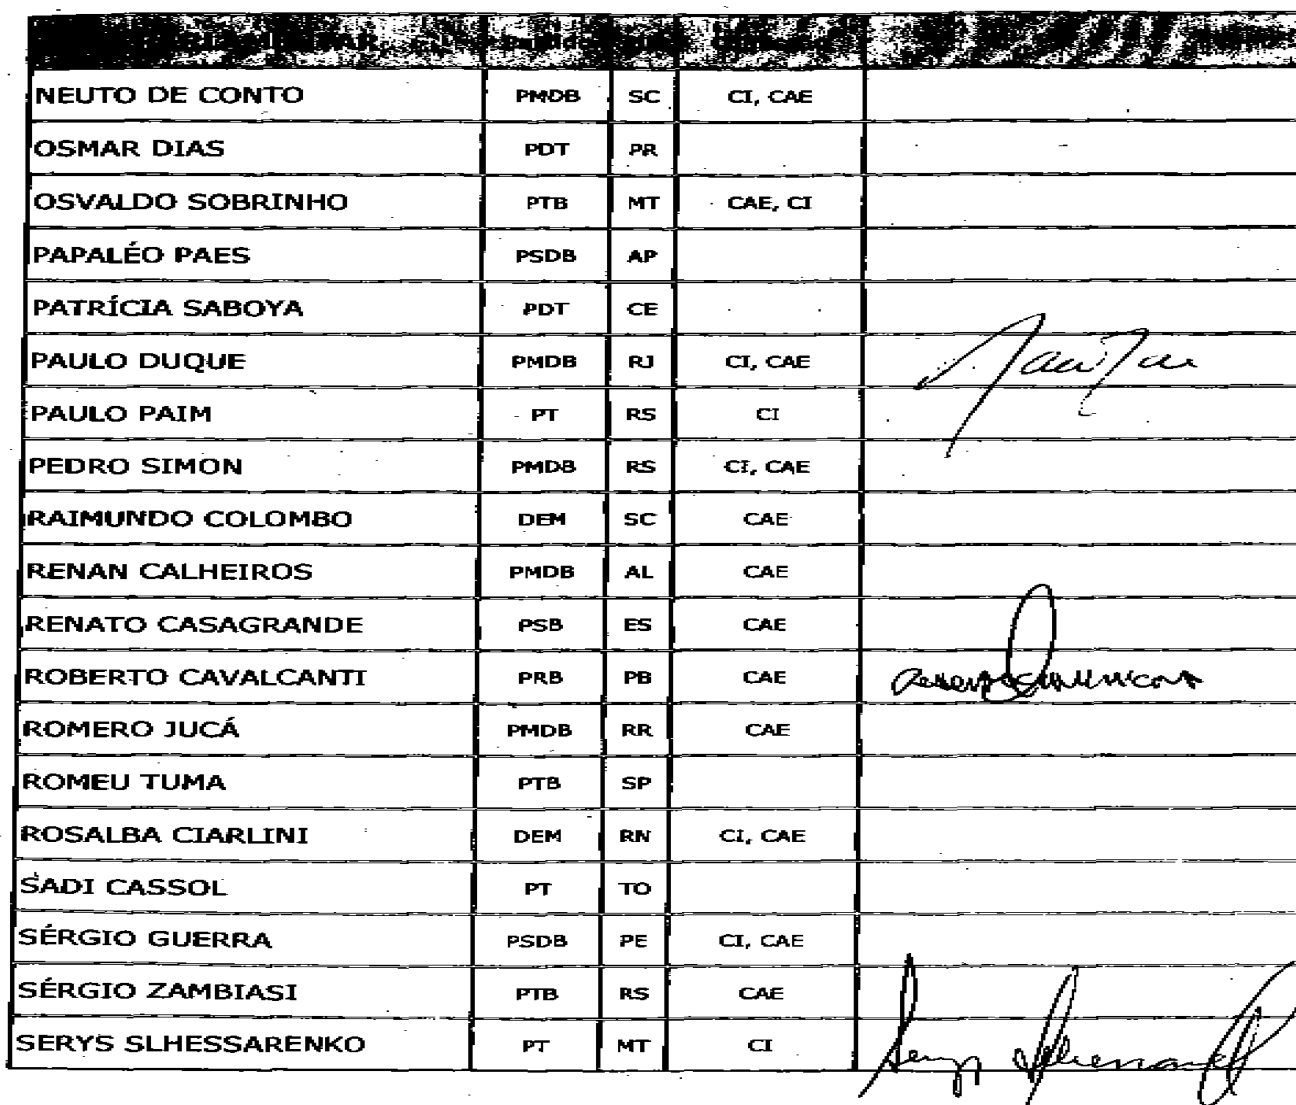 NEUTO DE CONTO PMDB SC CI, CAE
OSMAR DIAS PDT PR
OSVALDO SOBRINHO PTB MT CAE, CI
PAPALÉO PAES PSDB AP
PATRÍCIA SABOYA PDT CE
PAULO DUQUE PMDB RJ CI, CAE
PAULO PAIM PT RS CI
PEDRO SIMON PMDB RS CI, CAE
RAIMUNDO COLOMBO DEM SC CAE
RENAN CALHEIROS PMDB AL CAE
RENATO CASAGRANDE PSB ES CAE
ROBERTO CAVALCANTI PRB PB CAE
ROMERO JUCÁ PMDB RR CAE
ROMEU TUMA PTB SP
ROSALBA CIARLINI DEM RN CI, CAE
SADI CASSOL PT TO
SÉRGIO GUERRA PSDB PE CI, CAE
SÉRGIO ZAMBIASI PTB RS CAE
SERYS SLHESSARENKO PT MT CI